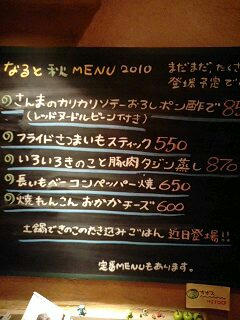 なると 秋 MENU 2010
まだまだ、たくさ
登場予定で
さんまのカリカリソテーおろしポン酢で 85
(レッドヌードルビーン付き)
フライドさつまいもスティック 550
いろいろきのこと豚肉タジン蒸し 870
長いもベーコンペッパー焼 650
焼れんこん おかかチーズ 600
土鍋できのこのたき込みごはん 近日登場!!
定番MENUもあります。